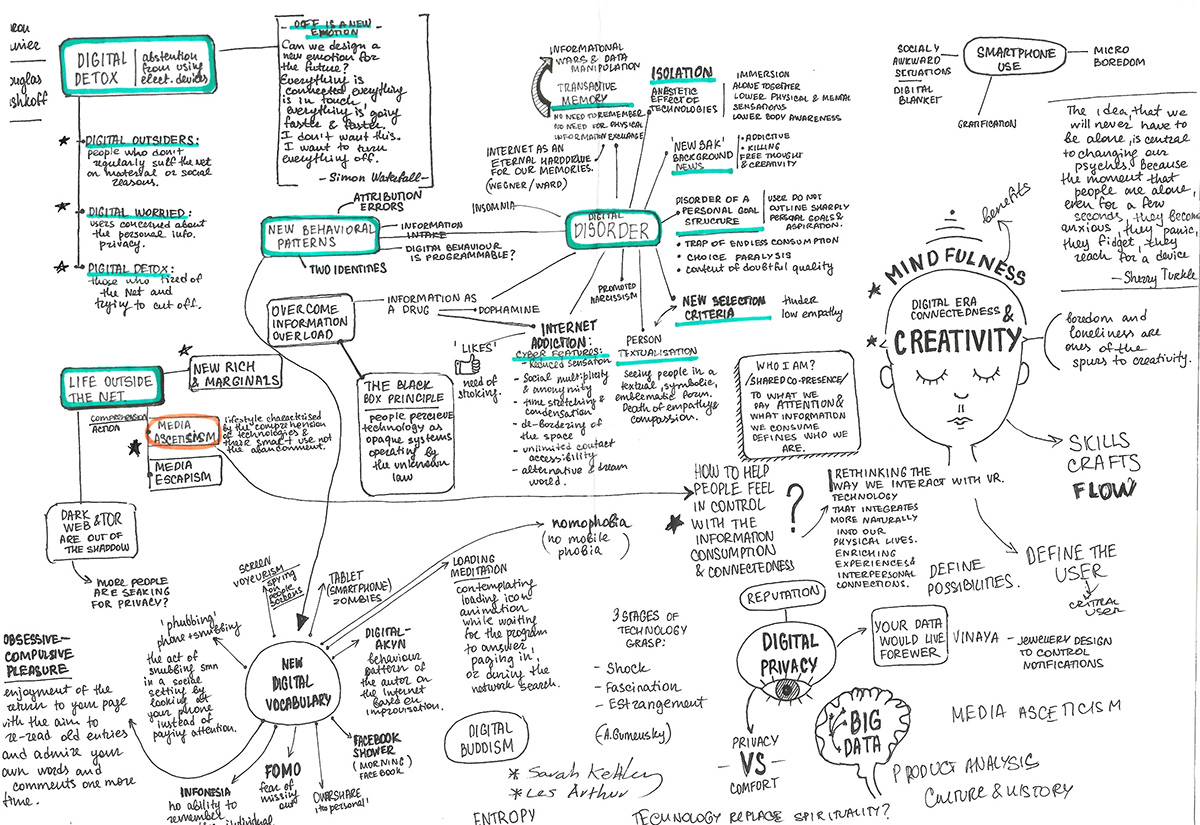 DIGITAL
DETOX
abstention
from using
elect. devices
OFF IS A NEW
EMOTION
Can we design a
new emotion for
the future?
Everything is
connected everything
is in touch,
everything is going
faster & faster.
I don't want this.
I want to turn
everything off.
- Simon Wakefall -
DIGITAL OUTSIDERS:
people who don't
regularly sulf the Net
on material or social
reasons.
DIGITAL WORRIED:
users concerned about
the personal info.
privacy.
DIGITAL DETOX:
those who tired of
the Net and
trying to cut off.
NEW BEHAVIORAL
PATTERNS
ATTRIBUTION
ERRORS
INFORMATION
INTAKE
DIGITAL BEHAVIOUR
IS PROGRAMMABLE?
TWO IDENTITIES
INFORMATIONAL
WARS & DATA
MANIPULATION
TRANSACTIVE
MEMORY
NO NEED TO REMEMBER
NO NEED FOR PHYSICAL
INFORMATION EXCHANGE
INTERNET AS AN
ETERNAL HARDDRIVE
FOR OUR MEMORIES.
(WEGNER/WARD)
INSOMNIA
DIGITAL
DISORDER
ISOLATION
ANESTETIC
EFFECT OF
TECHNOLOGIES
IMMERSION
ALONE TOGETHER
LOWER PHYSICAL & MENTAL
SENSATIONS
LOWER BODY AWARENESS
'NEW BAK'
BACKGROUND
NEWS
• ADDICTIVE
• KILLING
FREE THOUGHT
& CREATIVITY
DISORDER OF A
PERSONAL GOAL
STRUCTURE
USER DO NOT
OUTLINE SHARPLY
PERSONAL GOALS &
ASPIRATION.
• TRAP OF ENDLESS CONSUMPTION
• CHOICE PARALYSIS
• content of doubtful quality
NEW SELECTION
CRITERIA
tinder
low empathy
PROMOTED
NARCISSISM
PERSON
TEXTUALISATION
seeing people in a
textual, symbolic,
emblematic form.
Death of empathy &
compassion.
INFORMATION AS
A DRUG
DOPHAMINE
INTERNET
ADDICTION:
CYBER FEATURES:
- Reduced sensation
- Social multiplicity
& anonymity
- time stretching &
condensation
- de-bordering of
the space
- unlimited contact
accessibility
- alternative & dream
world.
'LIKES'
need of
stroking.
OVERCOME
INFORMATION
OVERLOAD
THE BLACK
BOX PRINCIPLE
people percieve
technology as
opaque systems
operating by
the unknown
law
LIFE OUTSIDE
THE NET
NEW RICH
& MARGINALS
COMPREHENSION
ACTION
MEDIA
ASCETISISM
lifestyle charactirised
by the comprehension
of technologies &
their smart use not
the abandonment.
MEDIA
ESCAPISM
DARK
WEB & TOR
ARE OUT OF
THE SHADOW
MORE PEOPLE
ARE SEAKING
FOR PRIVACY?
SMARTPHONE
USE
SOCIALY
AWKWARD
SITUATIONS
DIGITAL
BLANKET
MICRO
BOREDOM
GRATIFICATION
The idea, that we
will never have to
be alone, is central
to changing our
psychics because
the moment that
people are alone,
even for a few
seconds, they become
anxious, they panic,
they fidget, they
reach for a device
- Sherry Turkle
benefits
MINDFULNESS
DIGITAL ERA
CONNECTEDNESS &
CREATIVITY
boredom and
loneliness are
ones of the
spurs to creativity.
SKILLS
CRAFTS
FLOW
WHO I AM?
/SHARED CO-PRESENCE/
TO WHAT WE
PAY ATTENTION &
WHAT INFORMATION
WE CONSUME
DEFINES WHO WE
ARE.
HOW TO HELP
PEOPLE FEEL
IN CONTROL
WITH THE
INFORMATION
CONSUMPTION
& CONNECTEDNESS
?
RETHINKING THE
WAY WE INTERACT WITH VR.
TECHNOLOGY
THAT INTEGRATES
MORE NATURALLY
INTO OUR
PHYSICAL LIVES.
ENRICHING
EXPERIENCES &
INTERPERSONAL
CONNECTIONS.
DEFINE
POSSIBILITIES.
DEFINE THE
USER
CENTRAL
USER
nomophobia
(no mobile
phobia)
SCREEN
VOYEURISM
spying
people
screens
TABLET
(SMARTPHONE)
ZOMBIES
LOADING
MEDITATION
contemplating
loading icon
animation
while waiting
for the program
to answer,
paging in,
or during the
network search.
'phubbing'
phone+snubbing
the act of
snubbing smn
in a social
setting by
looking at
your phone
instead of
paying attention.
NEW
DIGITAL
VOCABULARY
DIGITAL-
AKYN
behaviour
pattern of
the autor on
the Internet
based on
improvisation.
FACEBOOK
SHOWER
(MORNING)
FACEBOOK
OBSESSIVE-
COMPULSIVE
PLEASURE
enjoyment of the
return to your page
with the aim to
re-read old entries
and admire your
own words and
comments one more
time.
INFONESIA
no ability to
remember
FOMO
fear of
missing
out
OVERSHARE
'too personal'
3 STAGES OF
TECHNOLOGY
GRASP:
- Shock
- Fascination
- Estrangement
DIGITAL
BUDDISM
* Sarah Kettley
* Les Arthur
ENTROPY
TECHNOLOGY REPLACE SPIRITUALITY?
REPUTATION
DIGITAL
PRIVACY
YOUR DATA
WOULD LIVE
FOREWER
VINAYA
- JEWELLERY DESIGN
TO CONTROL
NOTIFICATIONS
PRIVACY
-VS-
COMFORT
BIG
DATA
MEDIA ASCETICISM
PRODUCT ANALYSIS
CULTURE & HISTORY